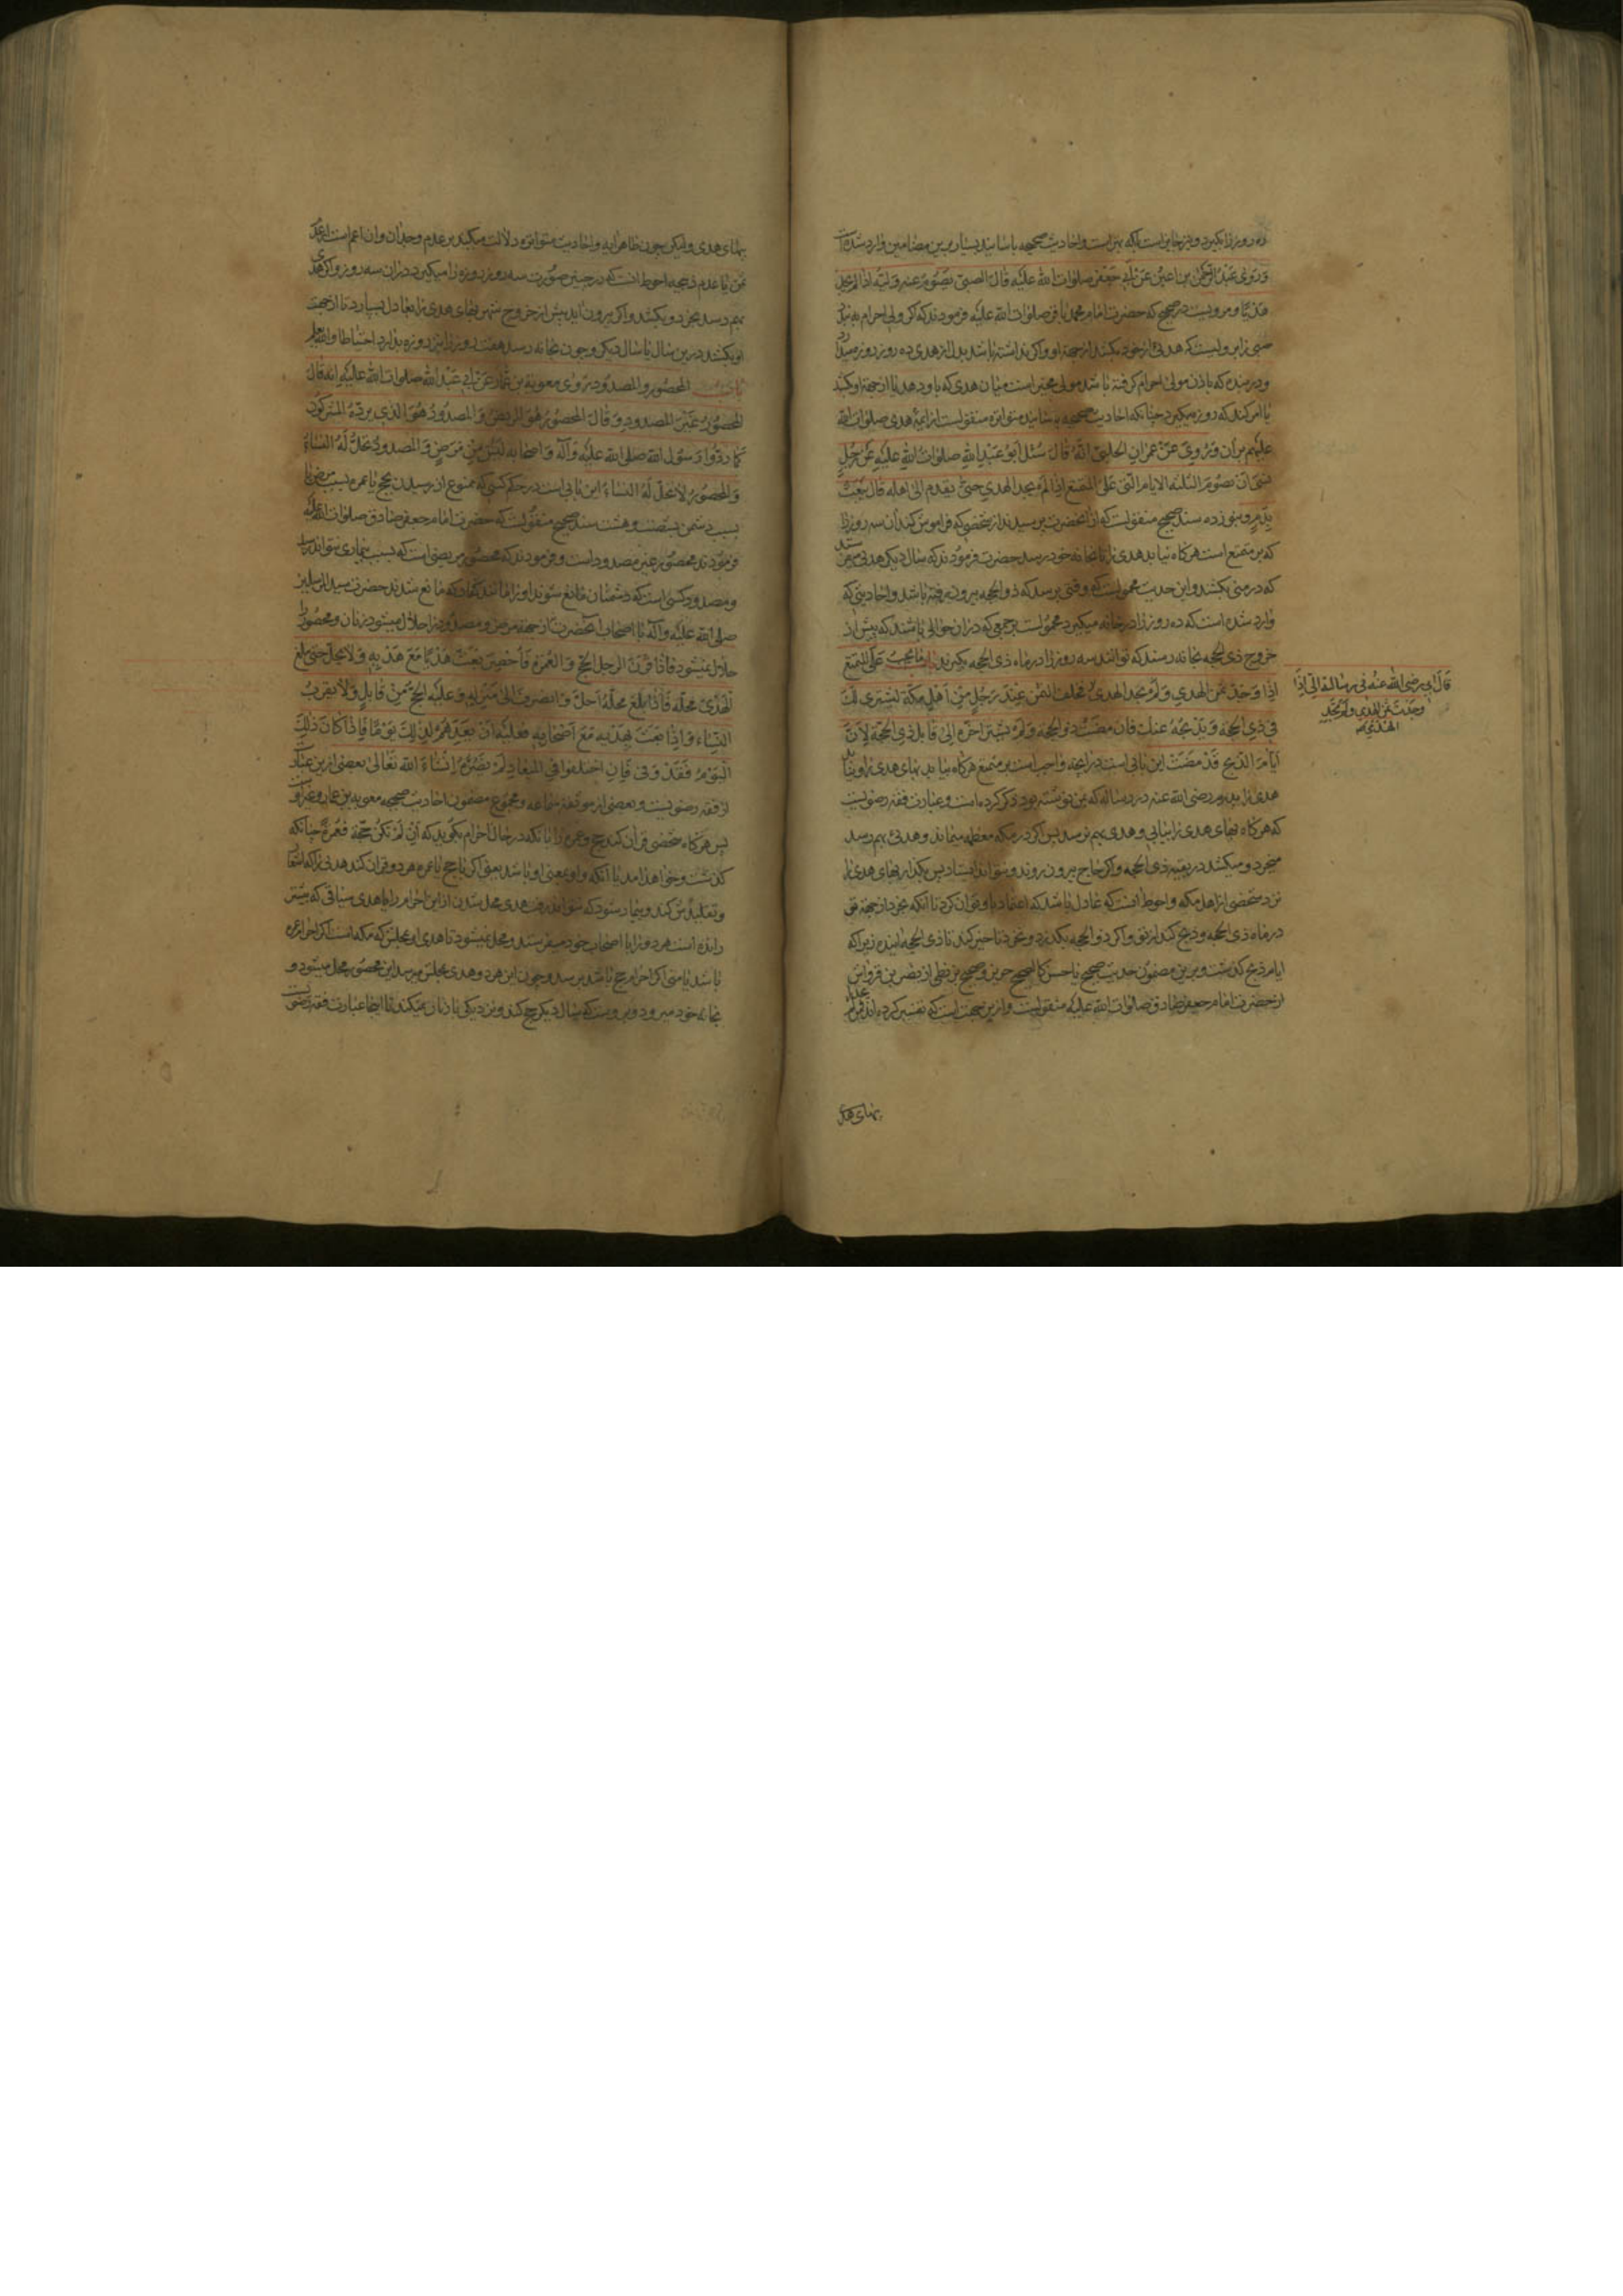 ده روز را بگیرد و نیز جایز است بلکه بهتر است و احادیث صحیحه باسانید بسیار برین مضامین وارد شده است
وَرَوٰی عَبْدُ الرَّحْمٰنِ بْنُ اَعْیَنَ عَنْ اَبی جَعْفَرٍ صلوات الله علیه قَالَ الصَّبِیُّ یَصُومُ عَنْهُ وَلِیُّهُ اِذَا لَمْ یَجِدْ
هَدْیًا و مرویست در صحیح که حضرت امام محمد باقر صلوات الله علیه فرمودند که اکر ولی احرام به بندد
صبی را بر ولیست که هدیی از خود بکشد از جهة او و اکر نداشته باشد بدل از هدی ده روز روزه میدارد
و در بنده که باذن مولی احرام کرفته باشد مولی مخیر است میان هدی که باو دهد یا از جهة او کشد
یا امر کند که روزه میکیرد چنانکه احادیث صحیحه باسانید متواتره منقولست از ائمه هدی صلوات الله
علیهم بر آن وَرُوِیَ عَنْ عِمْرَانَ الحَلَبِیِّ اَنَّهُ قَالَ سُئِلَ اَبُو عَبْدِ اللهِ صلوات الله علیه عَنْ رَجُلٍ
نَسِیَ اَنْ یَصُومَ الثَّلٰثَةَ الایام الَّتی عَلَی المُتَمَتِّعِ اِذَا لَمْ یَجِدِ الهَدْیَ حَتّٰی یَقْدَمَ اِلٰی اَهْلِهِ قَالَ یَبْعَثُ
بِدَمٍ و بنوزده سند صحیح منقولست که از آنحضرت پرسیدند از شخصی که فراموش کند آن سه روز را
که بر متمتع است هرکاه نیابد هدی را تا بخانه خود رسد حضرت فرمودند که سال دیکر هدیی میفرستد
که در منی بکشند و این حدیث محمولست که وقتی برسد که ذو الحجه بیرون رفته باشد و احادیثی که
وارد شده است که ده روز را در خانه میکیرد محمولست بر جمعی که در آن حوالی باشند که پیش از
خروج ذی الحجه بخانه رسند که توانند سه روز را در ماه ذی الحجه بکیرند باب مَا یَجِبُ عَلَی المُتَمَتِّعِ
اِذَا وَجَدَ ثَمَنَ الهَدْیِ وَلَمْ یَجِدِ الهَدْیَ فخلف الثمن عِنْدَ رَجُلٍ مِنْ اَهْلِ مَکَّةَ لیشتری لَكَ
فی ذِی الحِجَّةِ وَیَذْبَحُهُ عَنْكَ فَاِنْ مَضَتْ ذُو الحِجَّةِ وَلَمْ یَشْتَرِ اَخَّرَهُ اِلٰی قَابِلِ ذِی الحِجَّةِ لِاَنَّ
اَیَّامَ الذَّبْحِ قَدْ مَضَتْ این بابی است در آنچه واجب است بر متمتع هرکاه بیابد بهای هدی را و نیابد
هدی را پدرم رضی الله عنه در رساله که بمن نوشته بود ذکر کرده است و عبارت فقه رضویست
که هرکاه بهای هدی را بیابی و هدی بهم نرسد پس اکر در مکه معظمه میماند و هدی بهم رسد
میخرد و میکشد در بقیه ذی الحجه و اکر حاج بیرون روند و نتواند ایستاد پس بکذارد بهای هدی را
نزد شخصی از اهل مکه و احوط آنست که عادل باشد که اعتماد باو توان کرد تا آنکه بخرد از جهة تو
در ماه ذی الحجه و ذبح کند از تو و اکر ذو الحجه بکذرد و نخرد تاخیر کند تا ذی الحجه آینده زیرا که
ایام ذبح کذشت و برین مضمون حدیث صحیح یا حسن کالصحیح حریز و صحیح بزنطی از نضر بن قرواش
از حضرت امام جعفر صادق صلوات الله علیه منقولست و ازین جهت است که تفسیر کرده اند
بهای هدی
قَالَ اَبِی رضی الله عنه فی رسالته اِلَیَّ اِذَا
وَجَدْتَ ثَمَنَ الهَدْیِ وَلَمْ تَجِدِ
الهَدْیَ
بهای هدی ولیکن چون ظاهر آیه و احادیث متواتره دلالت میکند بر عدم وجدان و آن اعم است از عدم
ثمن یا عدم ذبیحه احوط آنست که در چنین صورت سه روز روزه را میکیرد در آن سه روز و اکر هدی
بهم رسد بخرد و بکشد و اکر بیرون آید پیش از خروج شهر بهای هدی را بعادل بسپارد تا از جهت
او بکشد درین سال یا سال دیکر و چون بخانه رسد هفت روز را نیز روزه بدارد احتیاطا والله یعلم
باب المحصور والمصدود رَوٰی مُعٰوِیَةُ بْنُ عَمَّارٍ عَنْ اَبی عَبْدِ اللهِ صلوات الله علیه انه قَالَ
المَحْصُورُ غَیْرُ المَصْدُودِ وَ قَالَ المَحْصُورُ هُوَ المَرِیضُ وَ المَصْدُودُ هُوَ الَّذِی یَرُدُّهُ المُشْرِکُونَ
کَمَا رَدُّوا رَسُولَ اللهِ صلی الله علیه وَآله وَ اصحابه لَیْسَ مِنْ مَرَضٍ وَ المَصْدُودُ تَحِلُّ لَهُ النِّسَاءُ
وَ المَحْصُورُ لَا تَحِلُّ لَهُ النِّسَاءُ این بابی است در حکم کسی که ممنوع از رسیدن بحج یا عمره بسبب مرض یا
بسبب دشمن بشصت و هشت سند صحیح منقولست که حضرت امام جعفر صادق صلوات الله علیه
فرمودند محصور غیر مصدود است و فرمودند که محصور مریضی است که بسبب بیماری نتواند رسید
و مصدود کسی است که دشمنان مانع شوند او را مانند کفار که مانع شدند حضرت سید المرسلین
صلی الله علیه وآله با اصحاب آنحضرت نه از جهة مرض و مصدود را حلال میشود زنان و محصور را
حلال نمیشود فَاِذَا قَرَنَ الرَّجُلُ الحَجَّ وَ العُمْرَةَ فَاُحْصِرَ بَعَثَ هَدْیًا مَعَ هَدْیِهِ وَلَا یَحِلُّ حَتّٰی یَبْلُغَ
الهَدْیُ مَحِلَّهُ فَاِذَا بَلَغَ مَحِلَّهُ اَحَلَّ وَ انْصَرَفَ اِلٰی مَنْزِلِهِ وَ عَلَیْهِ الحَجُّ مِنْ قَابِلٍ وَلَا یَقْرَبُ
النِّسَاءَ وَ اِذَا بَعَثَ بِهَدْیِهِ مَعَ اَصْحَابِهِ فَعَلَیْهِ اَنْ یَعِدَهُمْ لِذٰلِكَ یَوْمًا فَاِذَا کَانَ ذٰلِكَ
الیَوْمُ فَقَدْ وَفٰی فَاِنِ اخْتَلَفُوا فِی المِیعَادِ لَمْ یَضُرَّهُ اِنْ شَاءَ الله تَعَالٰی بعضی ازین عبارت
از فقه رضویست و بعضی از موثقه سماعه و مجموع مضمون احادیث صحیحه معویه بن عمار و غیر او
پس هرکاه شخصی قران کند حج و عمره را بانکه در حال احرام بکوید که اِنْ لَمْ تَکُنْ حَجَّةً فَعُمْرَةً چنانکه
کذشت و خواهد آمد یا آنکه واو بمعنی او باشد یعنی اکر با حج یا عمره هر دو قران کند هدیی را که اشعار
و تقلیدش کند و بیمار شود که نتواند رفت هدی محل شدن از این احرام را با هدی سیاقی که پیشتر
رانده است هر دو را با اصحاب خود میفرستد و محل نمیشود تا هدی او بمحلش که مکه است اکر احرام عمره
باشد یا منی اکر احرام حج باشد برسد و چون این هر دو هدی بمحلش میرسد این محصور محل میشود و
بخانه خود میرود و بر وست که سال دیکر حج کند و نزدیکی با زنان نمیکند تا اینجا عبارت فقه رضویست